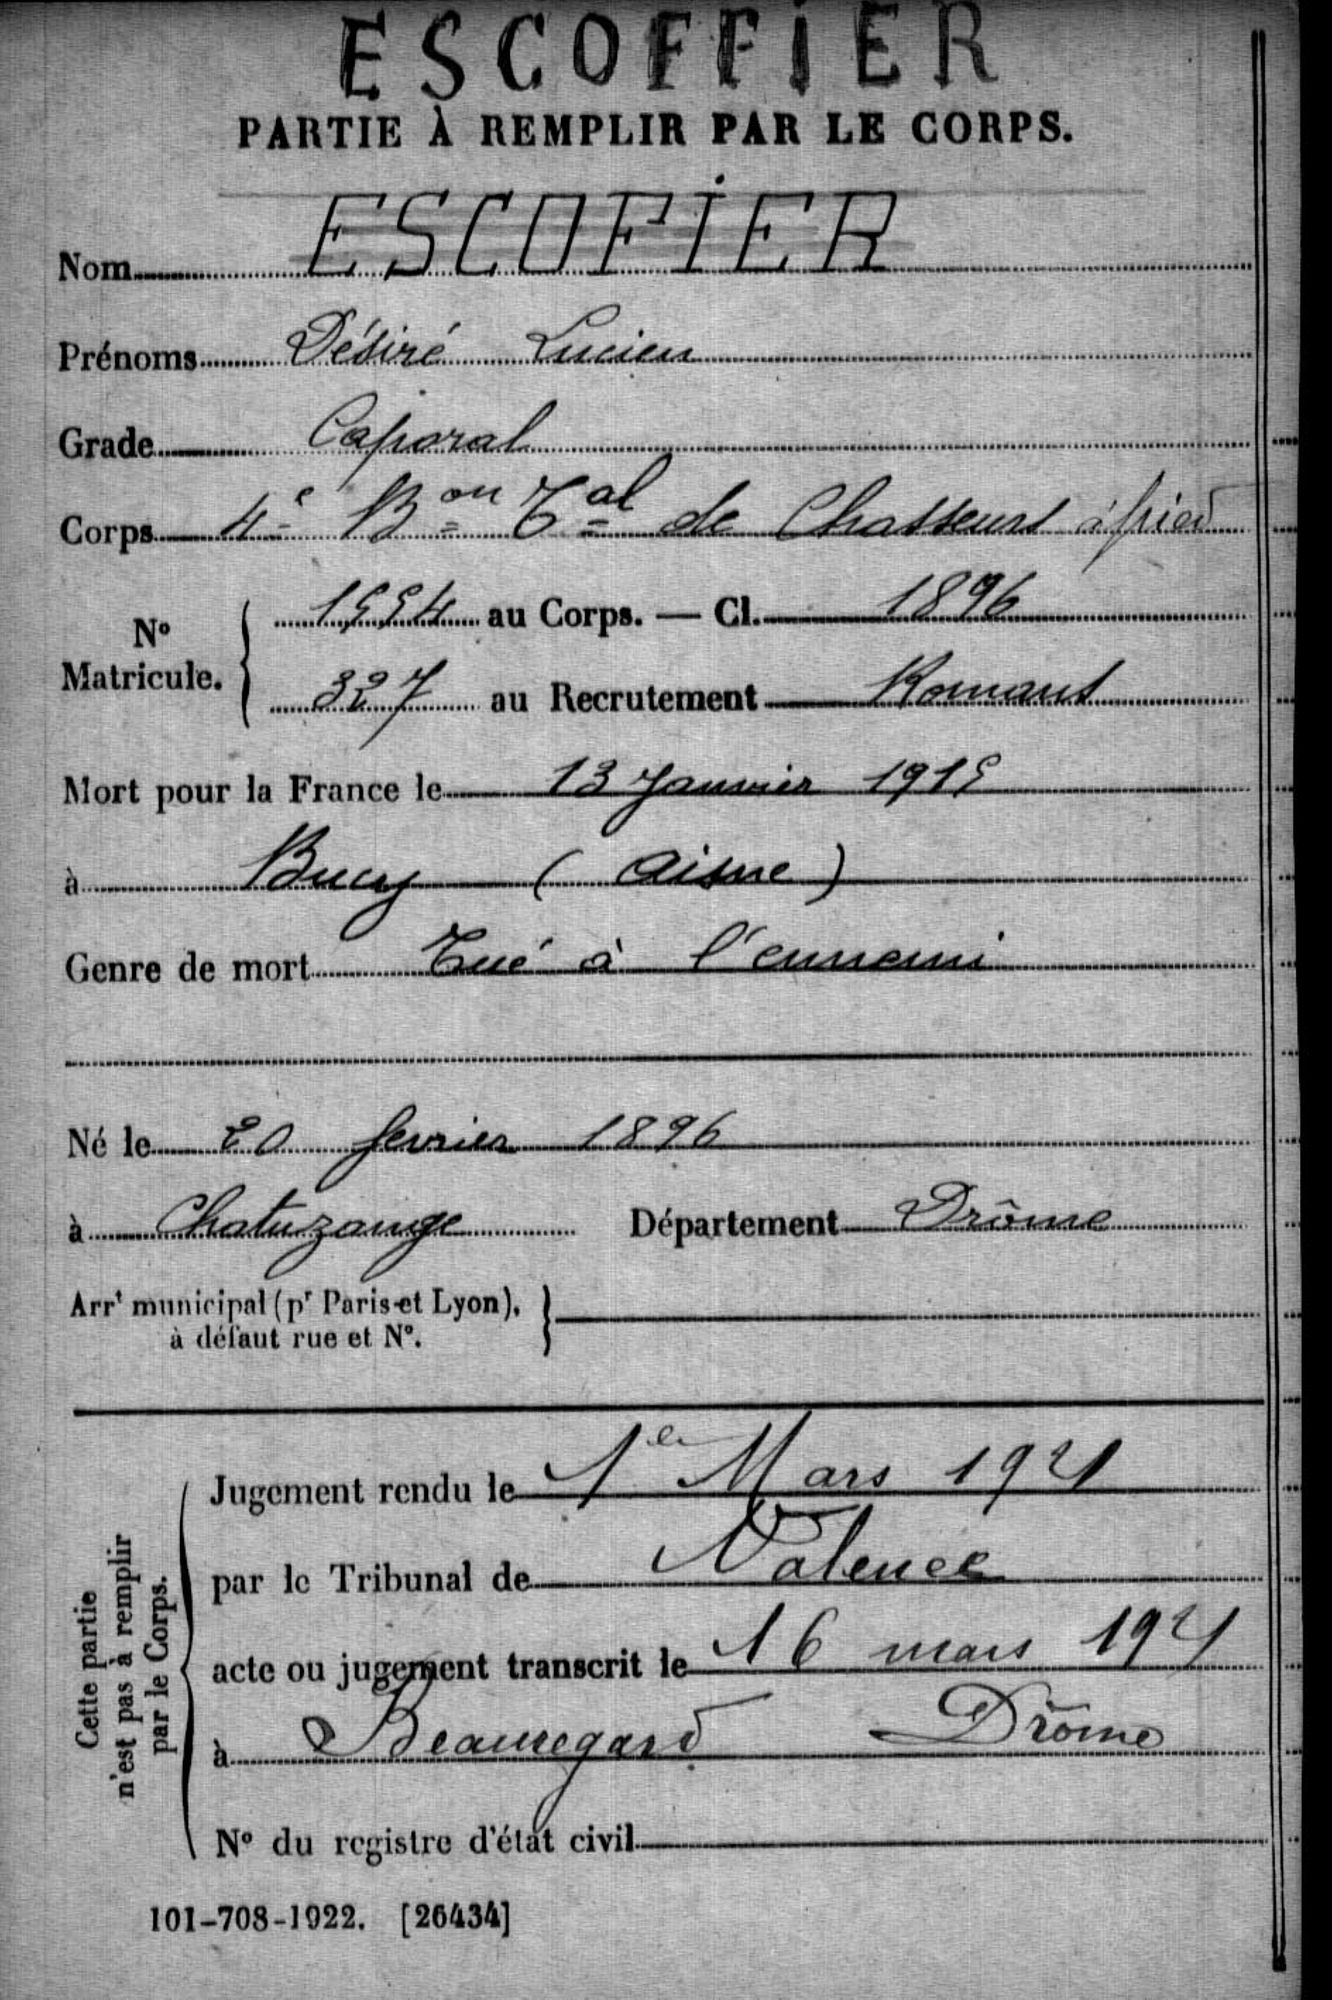 ESCOFFIER
PARTIE À REMPLIR PAR LE CORPS.
Nom ESCOFIER
Prénoms Désiré Lucien
Grade Caporal
Corps 4e Bon Tal de Chasseurs à pied
N° Matricule. 1554 au Corps. — Cl. 1896
327 au Recrutement Romans
Mort pour la France le 13 Janvier 1915
à Bucy (Aisne)
Genre de mort Tué à l'ennemi
Né le 20 fevrier 1896
à Chatuzange Département Drôme
Arrt municipal (pr Paris et Lyon),
à défaut rue et N°.
Cette partie
n'est pas à remplir
par le Corps.
Jugement rendu le 1er Mars 1921
par le Tribunal de Valence
acte ou jugement transcrit le 16 mars 1921
à Beauregard Drôme
N° du registre d'état civil
101-708-1922. [26434]